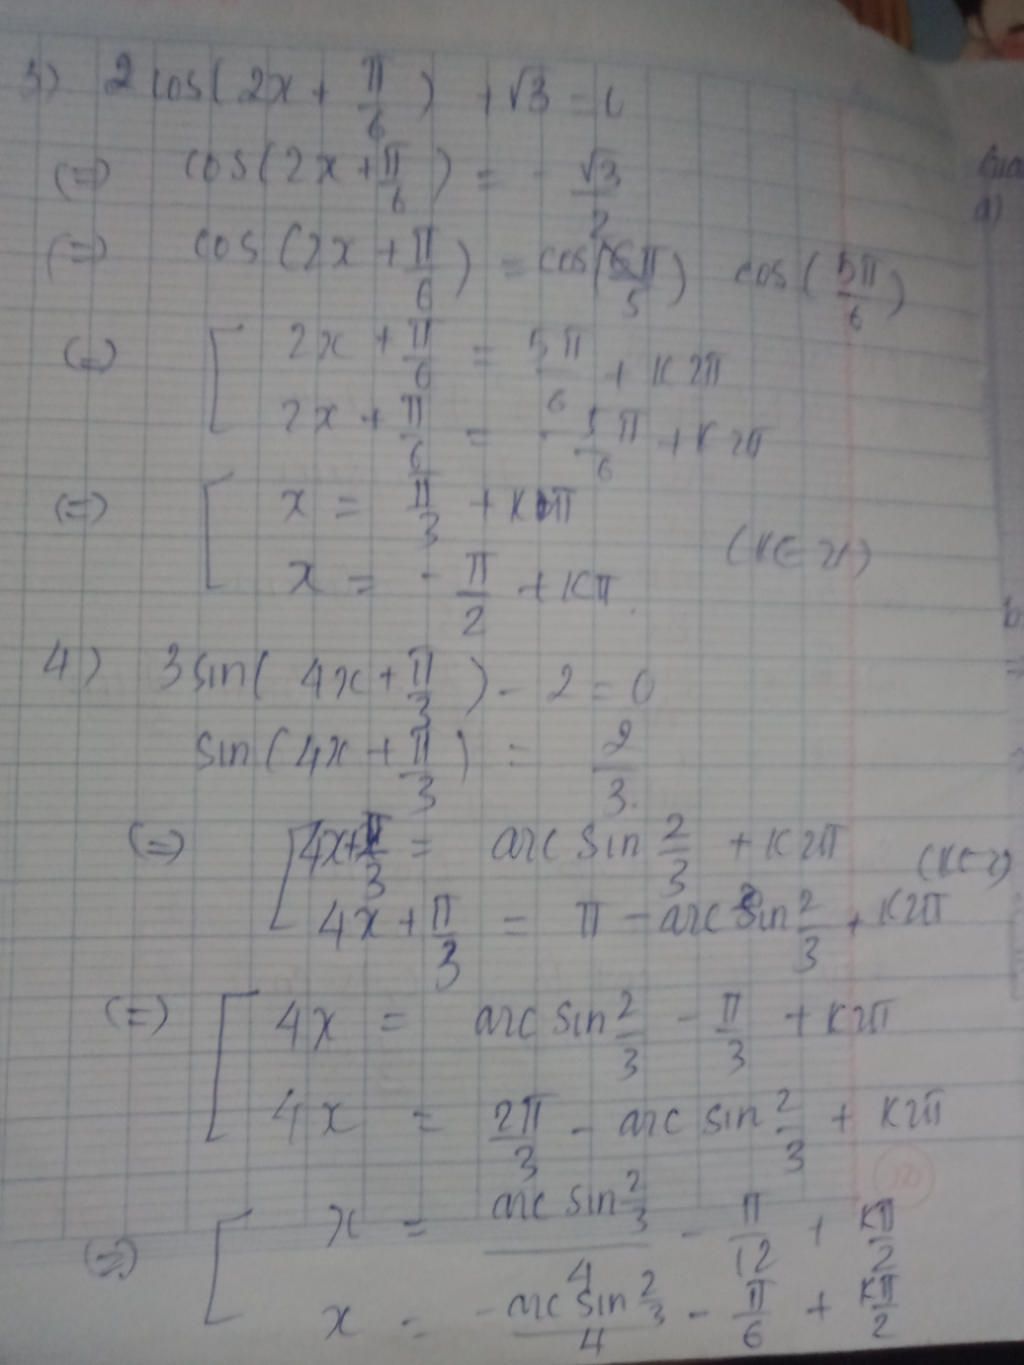 3) 2 cos(2x + π/6) + √3 = 0
(=) cos(2x + π/6) = - √3/2
(=) cos(2x + π/6) = cos(6π/5) cos(5π/6)
(=) [ 2x + π/6 = 5π/6 + K2π
2x + π/6 = - 5π/6 + K2π
(=) [ x = π/3 + Kπ
x = - π/2 + Kπ. (K∈Z)
4) 3 sin(4x + π/3) - 2 = 0
sin(4x + π/3) = 2/3.
(=) [ 4x + π/3 = arc sin 2/3 + K2π (K∈Z)
4x + π/3 = π - arc sin 2/3 + K2π
(=) [ 4x = arc sin 2/3 - π/3 + K2π
4x = 2π/3 - arc sin 2/3 + K2π
(=) [ x = arc sin 2/3 / 4 - π/12 + Kπ/2
x = - arc sin 2/3 / 4 - π/6 + Kπ/2
a)
b